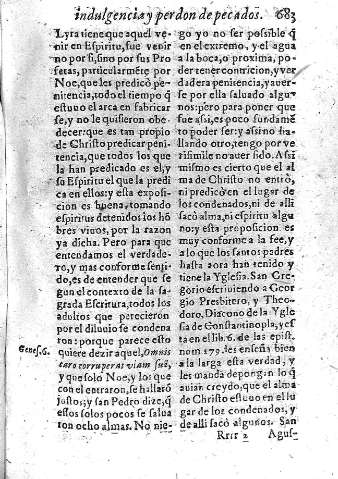 indulgencia y perdon de pecados. 683
Lyra tiene que aquel ve-
nir en Espiritu, fue venir
no por si, sino por sus Pro
fetas, particularmẽte por
Noe, que les predicò pe-
nitencia, todo el tiempo q̃
estuuo el arca en fabricar
se, y no le quisieron obe-
decer: que es tan propio
de Christo predicar peni-
tencia, que todos los que
la han predicado es el, y
su Espiritu el que la predi
ca en ellos: y esta exposi-
cion es buena, tomando
espiritus detenidos los hõ
bres viuos, por la razon
ya dicha. Pero para que
entendamos el verdade-
ro, y mas conforme senti-
do, es de entender que se
gun el contexto de la sa-
grada Escritura, todos los
adultos que perecieron
por el diluuio se condena
ron: porque parece esto
Genes. 6.
quiere dezir aquel, Omnis
caro corruperat viam suã,
y que solo Noe, y los que
con el entraron, se hallarõ
justos; y san Pedro dize, q̃
estos solos pocos se salua
ron ocho almas. No nie-
go yo no ser possible q̃
en el extremo, y el agua
a la boca, o proxima, po-
der tener contricion, y ver
dadera penitencia, y auer-
se por ella saluado algu-
nos: pero para poner que
fue assi, es poco fundamẽ
to poder ser: y assi no ha-
llando otro, tengo por ve
risimil e no auer sido. Assi
mismo es cierto que el al
ma de Christo no entrò,
ni predicò en el lugar de
los condenados, ni de alli
sacò alma, ni espiritu algu
no; y esta proposicion es
muy conforme a la fee, y
a lo que los santos padres
hasta aora han tenido y
tiene la Yglesia. San Gre-
gorio escriuiendo a Geor
gio Presbitero, y Theo-
doro, Diacono de la Ygle
sia de Constantinopla, y es
ta en el lib. 6. de las epist.
num 179. les enseña bien
a la larga esta verdad, y
les manda depongan lo q̃
auian creydo, que el alma
de Christo estuuo en el lu
gar de los condenados, y
de alli sacò algunos. San
Rrrr 2 Agus-